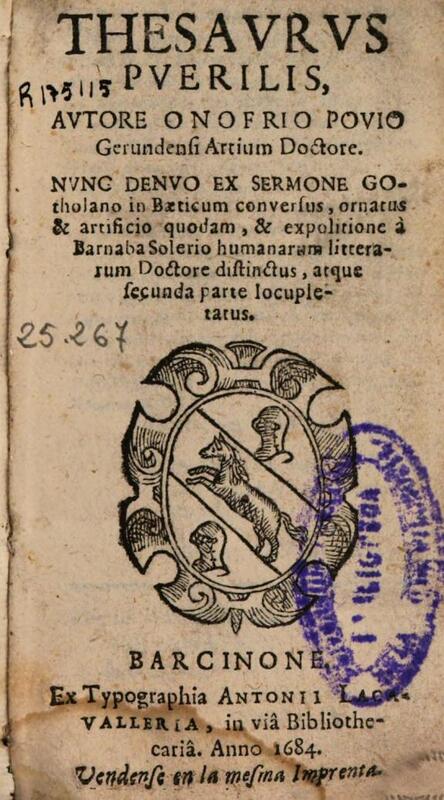 THESAVRVS
PVERILIS,
R 175115
AVTORE ONOFRIO POVIO
Gerundensi Artium Doctore.
NVNC DENVO EX SERMONE GO-
tholano in Bæticum conversus, ornatus
& artificio quodam, & expolitione à
Barnaba Solerio humanarum littera-
rum Doctore distinctus, atque
secunda parte locuple-
tatus.
25.267
BARCINONE,
Ex Typographia ANTONII LACA-
VALLERIA, in viâ Bibliothe-
cariâ. Anno 1684.
Vendense en la mesma Imprenta.